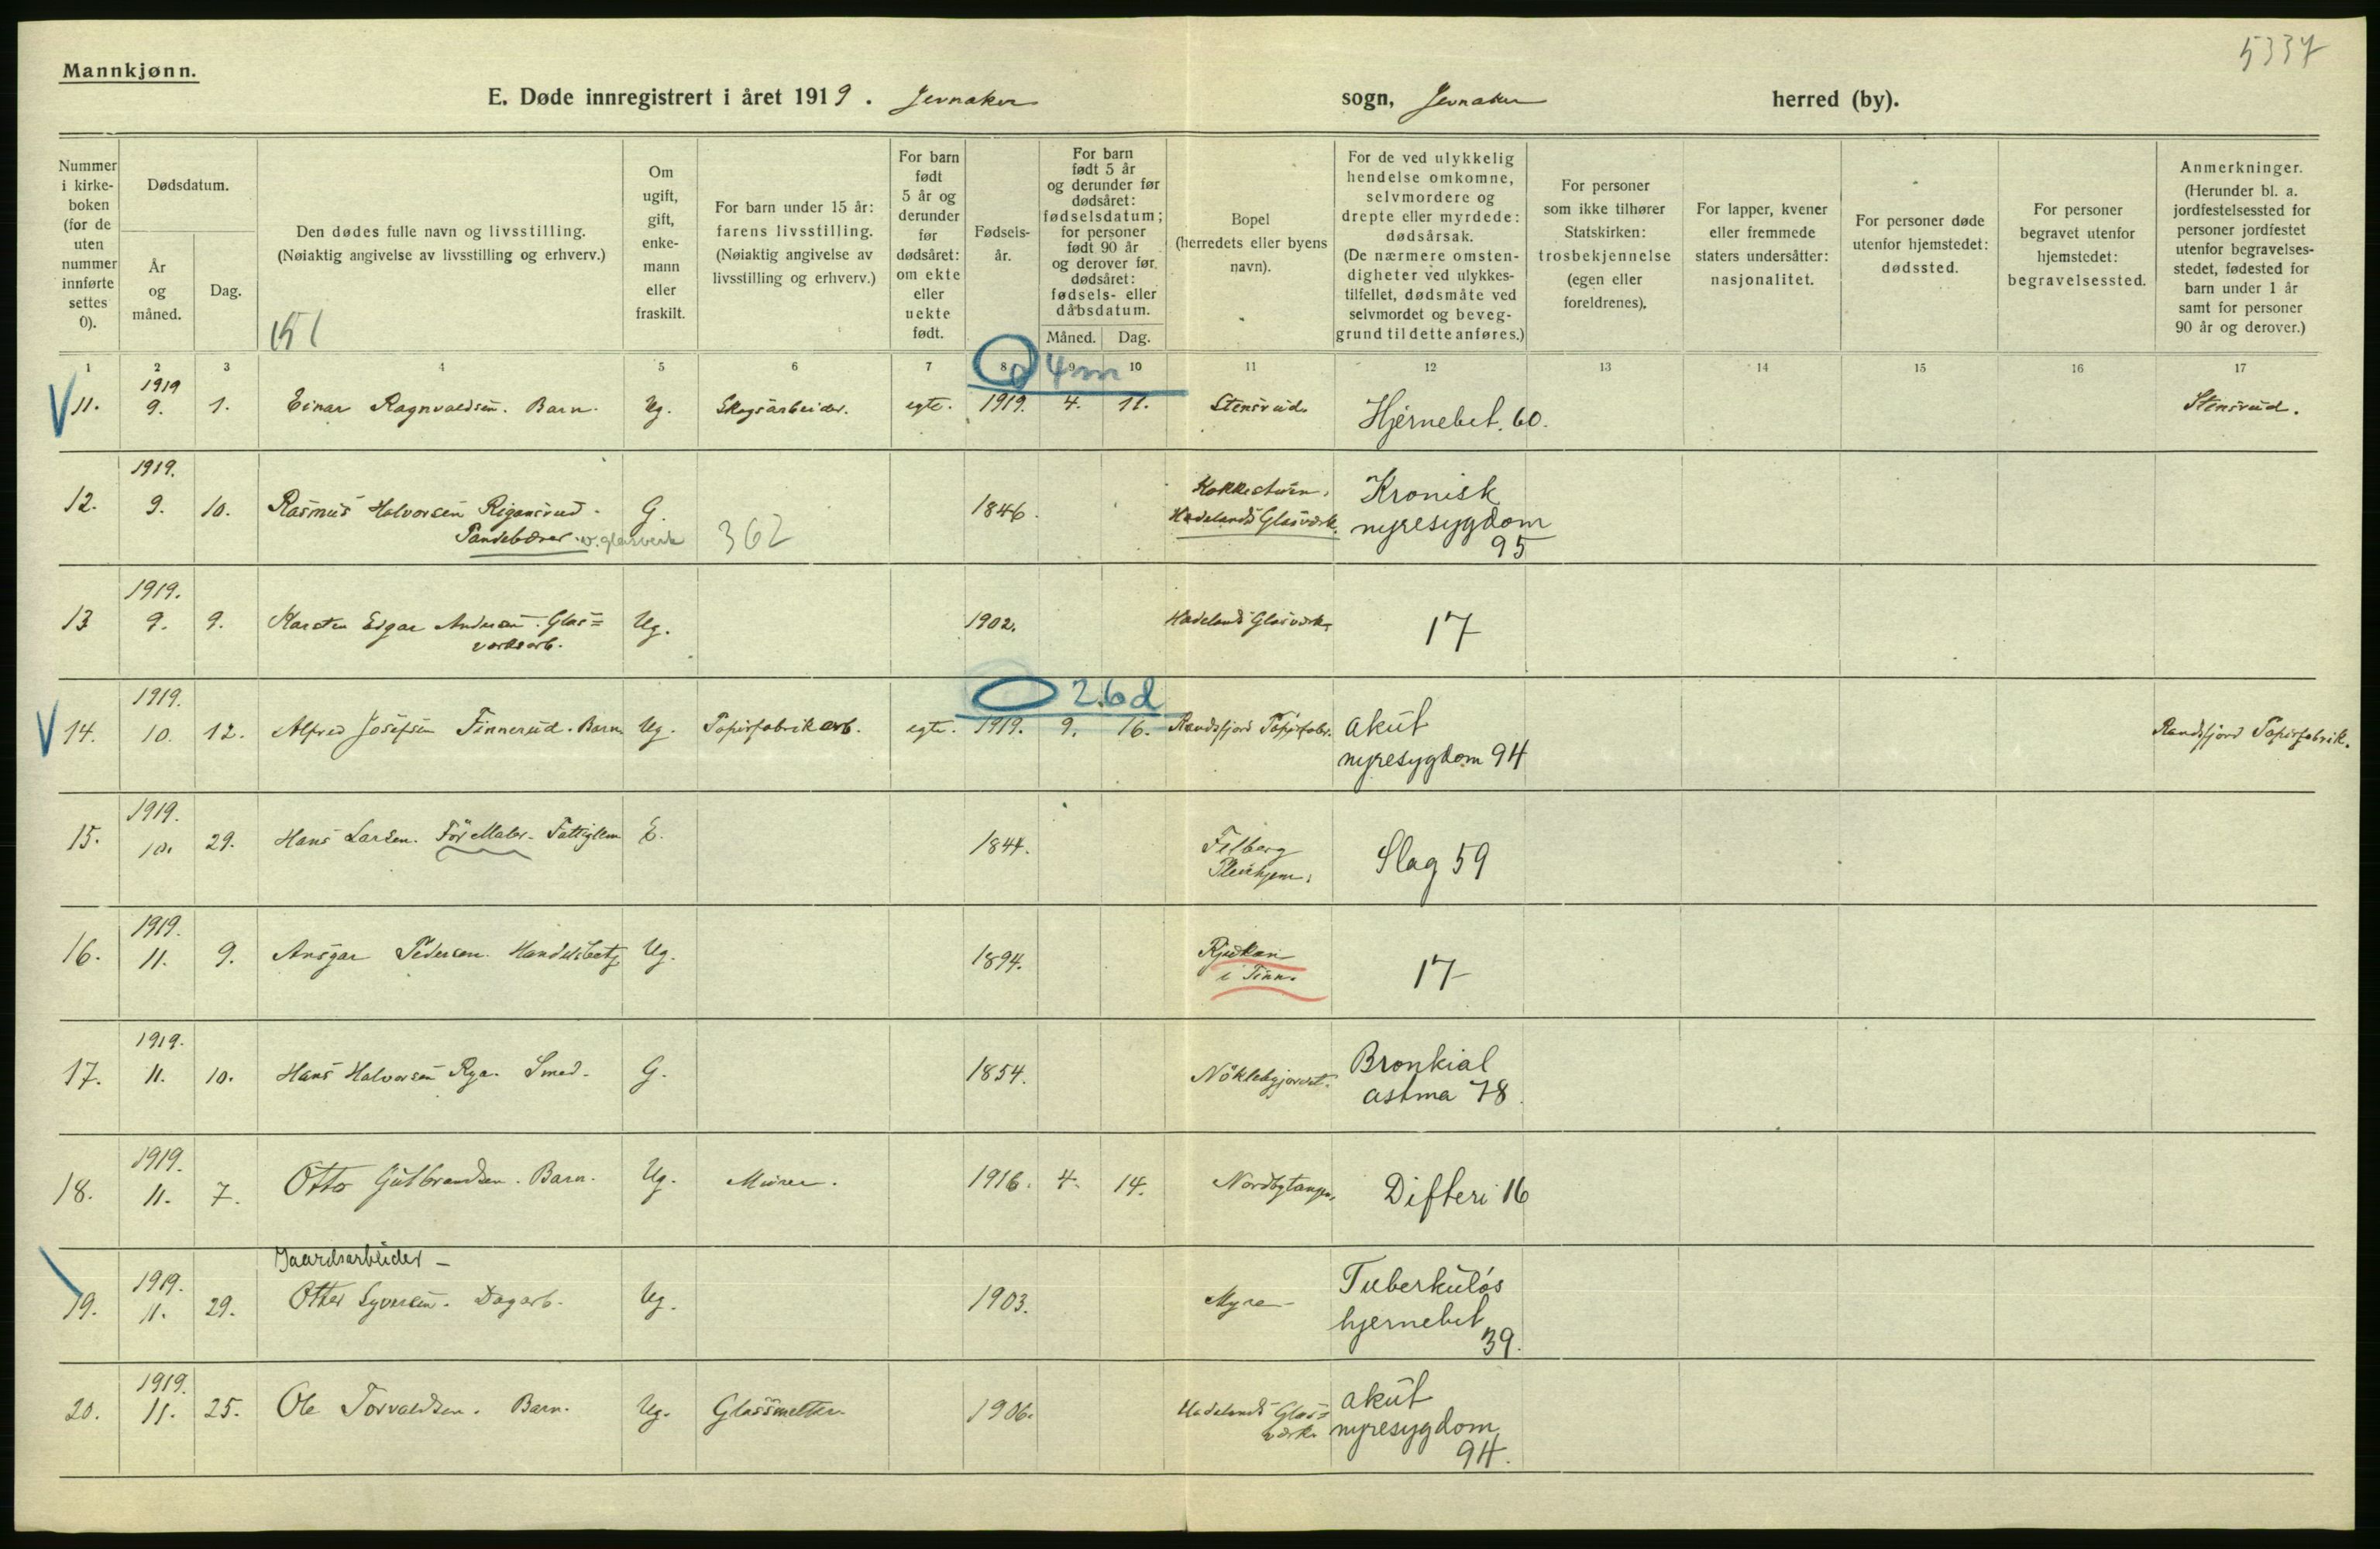 5337
Mannkjønn.
E. Døde innregistrert i året 1919. Jevnaker sogn, Jevnaker herred (by).
Nummer i kirkeboken (for de uten nummer innførte settes 0).
Dødsdatum.
År og måned.
Dag.
Den dødes fulle navn og livsstilling.
(Nøiaktig angivelse av livsstilling og erhverv.)
151
Om ugift, gift, enkemann eller fraskilt.
For barn under 15 år: farens livsstilling. (Nøiaktig angivelse av livsstilling og erhverv.)
For barn født 5 år og derunder før dødsåret: om ekte eller uekte født.
Fødselsår.
For barn født 5 år og derunder før dødsåret: fødselsdatum; for personer født 90 år og derover før dødsåret: fødsels- eller dåbsdatum.
Måned. Dag.
Bopel (herredets eller byens navn).
For de ved ulykkelig hendelse omkomne, selvmordere og drepte eller myrdede: dødsårsak. (De nærmere omstendigheter ved ulykkestilfellet, dødsmåte ved selvmordet og beveggrund til dette anføres.)
For personer som ikke tilhører Statskirken: trosbekjennelse (egen eller foreldrenes).
For lapper, kvener eller fremmede staters undersåtter: nasjonalitet.
For personer døde utenfor hjemstedet: dødssted.
For personer begravet utenfor hjemstedet: begravelsessted.
Anmerkninger. (Herunder bl. a. jordfestelsessted for personer jordfestet utenfor begravelsesstedet, fødested for barn under 1 år samt for personer 90 år og derover.)
1 2 3 4 5 6 7 8 9 10 11 12 13 14 15 16 17
4m
11. 1919 9. 1. Einar Ragnvaldsen. Barn. Ug. Skogsarbeider. egte. 1919. 4. 11. Stensrud. Hjernebet. 60. Stensrud.
12. 1919. 9. 10. Rasmus Halvorsen Rigansrud. G. 1846. Hadelands Glasværk. Kronisk nyresygdom 95
v. glasverk 362
13 1919. 9. 9. Karsten Edgar Andersen. Glas=værksarb. Ug. 1902. Hadelands Glasværk. 17
26d
14. 1919. 10. 12. Alfred Josefsen Finnerud. Barn. Ug. Papirfabrikarb. egte. 1919. 9. 16. Randsfjord Papirfabr. akut nyresygdom 94 Randsfjord Papirfabrik.
15. 1919. 10. 29. Hans Larsen. Før Maler. Fattiglem E. 1844. Felberg Pleiehjem. Slag 59
16. 1919. 11. 9. Ansgar Pedersen. Handelsbetj. Ug. 1894. Rjukan i Tinn. 17
17. 1919. 11. 10. Hans Halvorsen Rya. Smed. G. 1854. Bronkial astma 78.
18. 1919. 11. 7. Otto Gulbrandsen. Barn. Ug. Murer. 1916. 4. 14. Nordbytangen. Difteri 16
Gaardsarbeider -
19. 1919. 11. 29. Otter Syversen. Dagarb. Ug. 1903. Myra Tuberkuløs hjernebet. 39.
20. 1919. 11. 25. Ole Torvaldsen. Barn. Ug. Glassmelter 1906. Hadelands Glas=værk. akut nyresygdom 94.